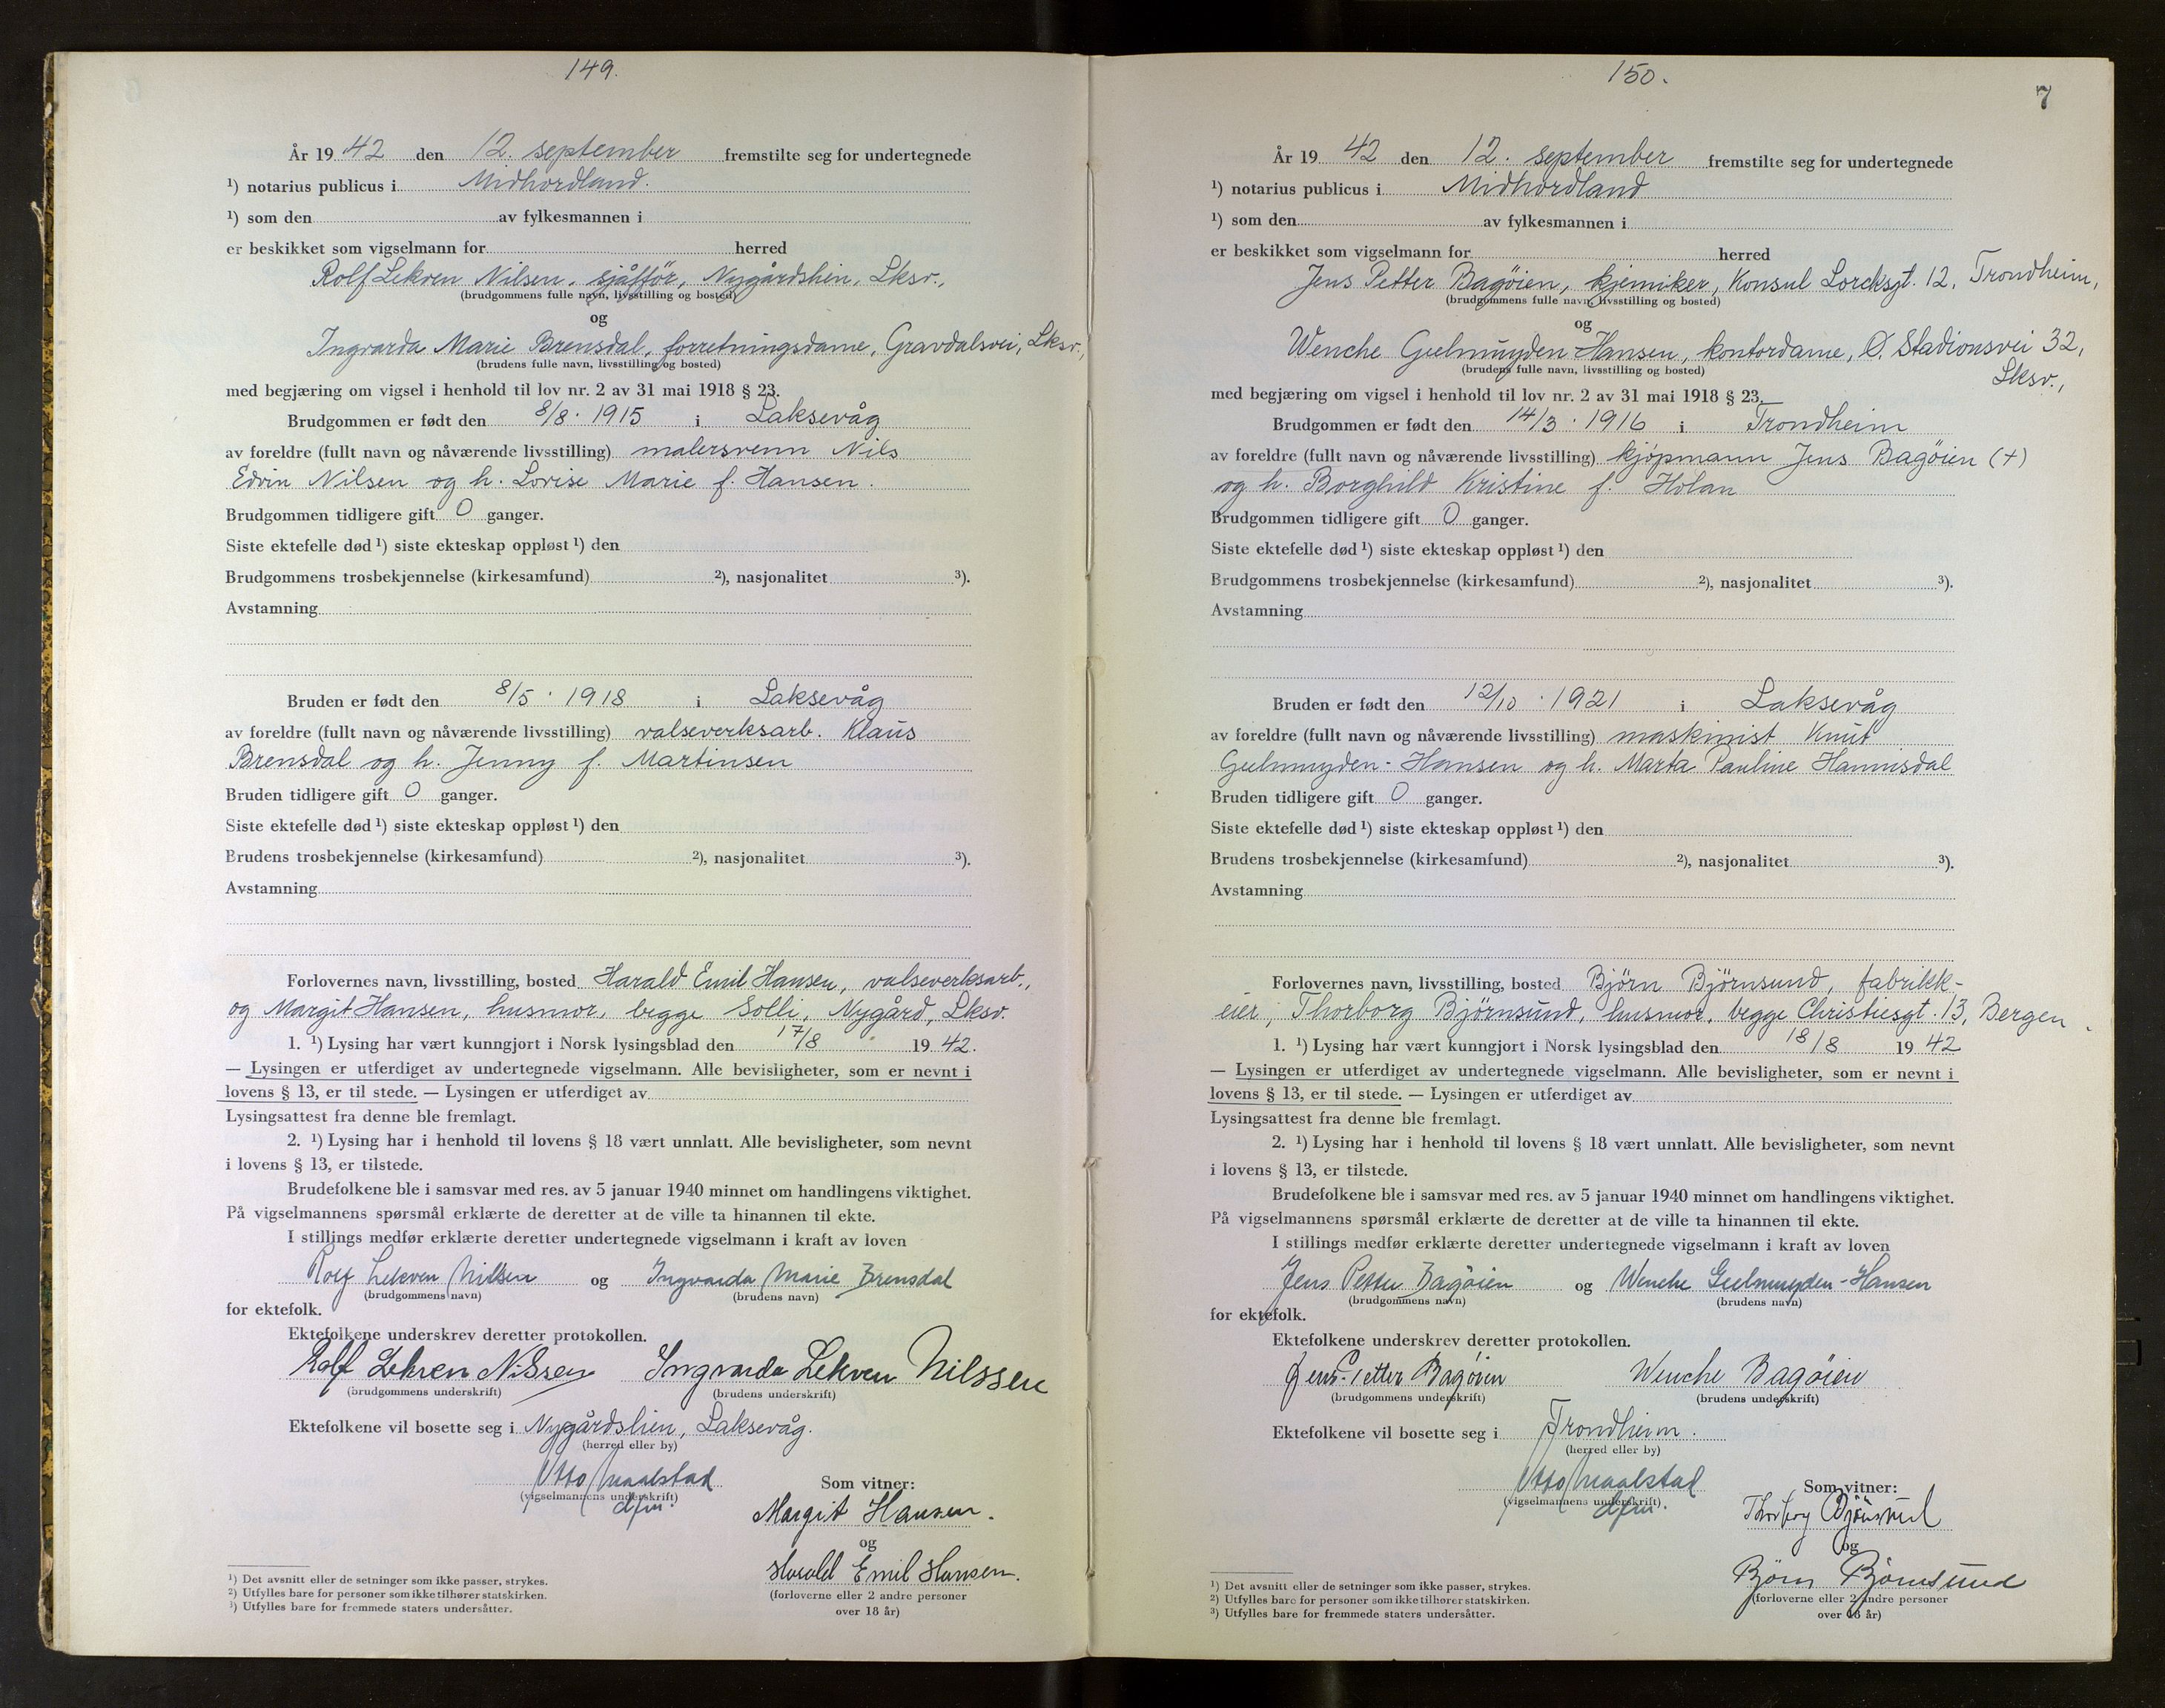 149.
År 1942 den 12. september fremstilte seg for undertegnede
¹) notarius publicus i Midhordland.
¹) som den av fylkesmannen i
er beskikket som vigselmann for herred
Rolf Lekven Nilsen, sjåffør, Nygårdslien, Lksv.,
(brudgommens fulle navn, livsstilling og bosted)
og
Ingvarda Marie Brensdal, forretningsdame, Gravdalsvei, Lksv.,
(brudens fulle navn, livsstilling og bosted)
med begjæring om vigsel i henhold til lov nr. 2 av 31 mai 1918 § 23.
Brudgommen er født den 8/8. 1915 i Laksevåg
av foreldre (fullt navn og nåværende livsstilling) malersvenn Nils
Edvin Nilsen og h. Lovise Marie f. Hansen.
Brudgommen tidligere gift 0 ganger.
Siste ektefelle død ¹) siste ekteskap oppløst ¹) den
Brudgommens trosbekjennelse (kirkesamfund) ²), nasjonalitet ³).
Avstamning
Bruden er født den 8/5. 1918 i Laksevåg
av foreldre (fullt navn og nåværende livsstilling) valseverksarb. Klaus
Brensdal og h. Jenny f. Martinsen
Bruden tidligere gift 0 ganger.
Siste ektefelle død ¹) siste ekteskap oppløst ¹) den
Brudens trosbekjennelse (kirkesamfund) ²), nasjonalitet ³).
Avstamning
Forlovernes navn, livsstilling, bosted Harald Emil Hansen, valseverksarb.,
og Margit Hansen, husmor, begge Solli, Nygård, Lksv.
1. ¹) Lysing har vært kunngjort i Norsk lysingsblad den 17/8 1942.
— Lysingen er utferdiget av undertegnede vigselmann. Alle bevisligheter, som er nevnt i
lovens § 13, er til stede. — Lysingen er utferdiget av
Lysingsattest fra denne ble fremlagt.
2. ¹) Lysing har i henhold til lovens § 18 vært unnlatt. Alle bevisligheter, som nevnt
i lovens § 13, er tilstede.
Brudefolkene ble i samsvar med res. av 5 januar 1940 minnet om handlingens viktighet.
På vigselmannens spørsmål erklærte de deretter at de ville ta hinannen til ekte.
I stillings medfør erklærte deretter undertegnede vigselmann i kraft av loven
Rolf Lekven Nilsen og Ingvarda Marie Brensdal
(brudgommens navn) (brudens navn)
for ektefolk.
Ektefolkene underskrev deretter protokollen.
Rolf Lekven Nilssen Ingvarda Lekven Nilssen
(brudgommens underskrift) (brudens underskrift)
Ektefolkene vil bosette seg i Nygårdslien, Laksevåg.
(herred eller by)
Otto Maalstad
(vigselmannens underskrift)
dfm.
Som vitner:
Margit Hansen.
og
Harald Emil Hansen.
(forloverne eller 2 andre personer
over 18 år)
¹) Det avsnitt eller de setninger som ikke passer, strykes.
²) Utfylles bare for personer som ikke tilhører statskirken.
³) Utfylles bare for fremmede staters undersåtter.
150.
7
År 1942 den 12. september fremstilte seg for undertegnede
¹) notarius publicus i Midhordland
¹) som den av fylkesmannen i
er beskikket som vigselmann for herred
Jens Petter Bagöien, kjemiker, Konsul Lorcksgt. 12, Trondheim,
(brudgommens fulle navn, livsstilling og bosted)
og
Wenche Gulmuyden-Hansen, kontordame, Ö. Stadionsvei 32,
(brudens fulle navn, livsstilling og bosted)
Lksv.,
med begjæring om vigsel i henhold til lov nr. 2 av 31 mai 1918 § 23.
Brudgommen er født den 14/3. 1916 i Trondheim
av foreldre (fullt navn og nåværende livsstilling) kjøpmann Jens Bagöien (+)
og h. Borghild Kristine f. Holan
Brudgommen tidligere gift 0 ganger.
Siste ektefelle død ¹) siste ekteskap oppløst ¹) den
Brudgommens trosbekjennelse (kirkesamfund) ²), nasjonalitet ³).
Avstamning
Bruden er født den 12/10. 1921 i Laksevåg
av foreldre (fullt navn og nåværende livsstilling) maskinist Knut
Gulmuyden-Hansen og h. Marta Pauline Hannisdal
Bruden tidligere gift 0 ganger.
Siste ektefelle død ¹) siste ekteskap oppløst ¹) den
Brudens trosbekjennelse (kirkesamfund) ²), nasjonalitet ³).
Avstamning
Forlovernes navn, livsstilling, bosted Björn Björnsund, fabrikk-
eier, Thorborg Björnsund, husmor, begge Christiesgt. 13, Bergen.
1. ¹) Lysing har vært kunngjort i Norsk lysingsblad den 18/8 1942
— Lysingen er utferdiget av undertegnede vigselmann. Alle bevisligheter, som er nevnt i
lovens § 13, er til stede. — Lysingen er utferdiget av
Lysingsattest fra denne ble fremlagt.
2. ¹) Lysing har i henhold til lovens § 18 vært unnlatt. Alle bevisligheter, som nevnt
i lovens § 13, er tilstede.
Brudefolkene ble i samsvar med res. av 5 januar 1940 minnet om handlingens viktighet.
På vigselmannens spørsmål erklærte de deretter at de ville ta hinannen til ekte.
I stillings medfør erklærte deretter undertegnede vigselmann i kraft av loven
Jens Petter Bagöien og Wenche Gulmuyden-Hansen
(brudgommens navn) (brudens navn)
for ektefolk.
Ektefolkene underskrev deretter protokollen.
Jens Petter Bagöien Wenche Bagöien
(brudgommens underskrift) (brudens underskrift)
Ektefolkene vil bosette seg i Trondheim.
(herred eller by)
Otto Maalstad
(vigselmannens underskrift)
dfm.
Som vitner:
Thorborg Björnsund
og
Björn Björnsund
(forloverne eller 2 andre personer
over 18 år)
¹) Det avsnitt eller de setninger som ikke passer, strykes.
²) Utfylles bare for personer som ikke tilhører statskirken.
³) Utfylles bare for fremmede staters undersåtter.